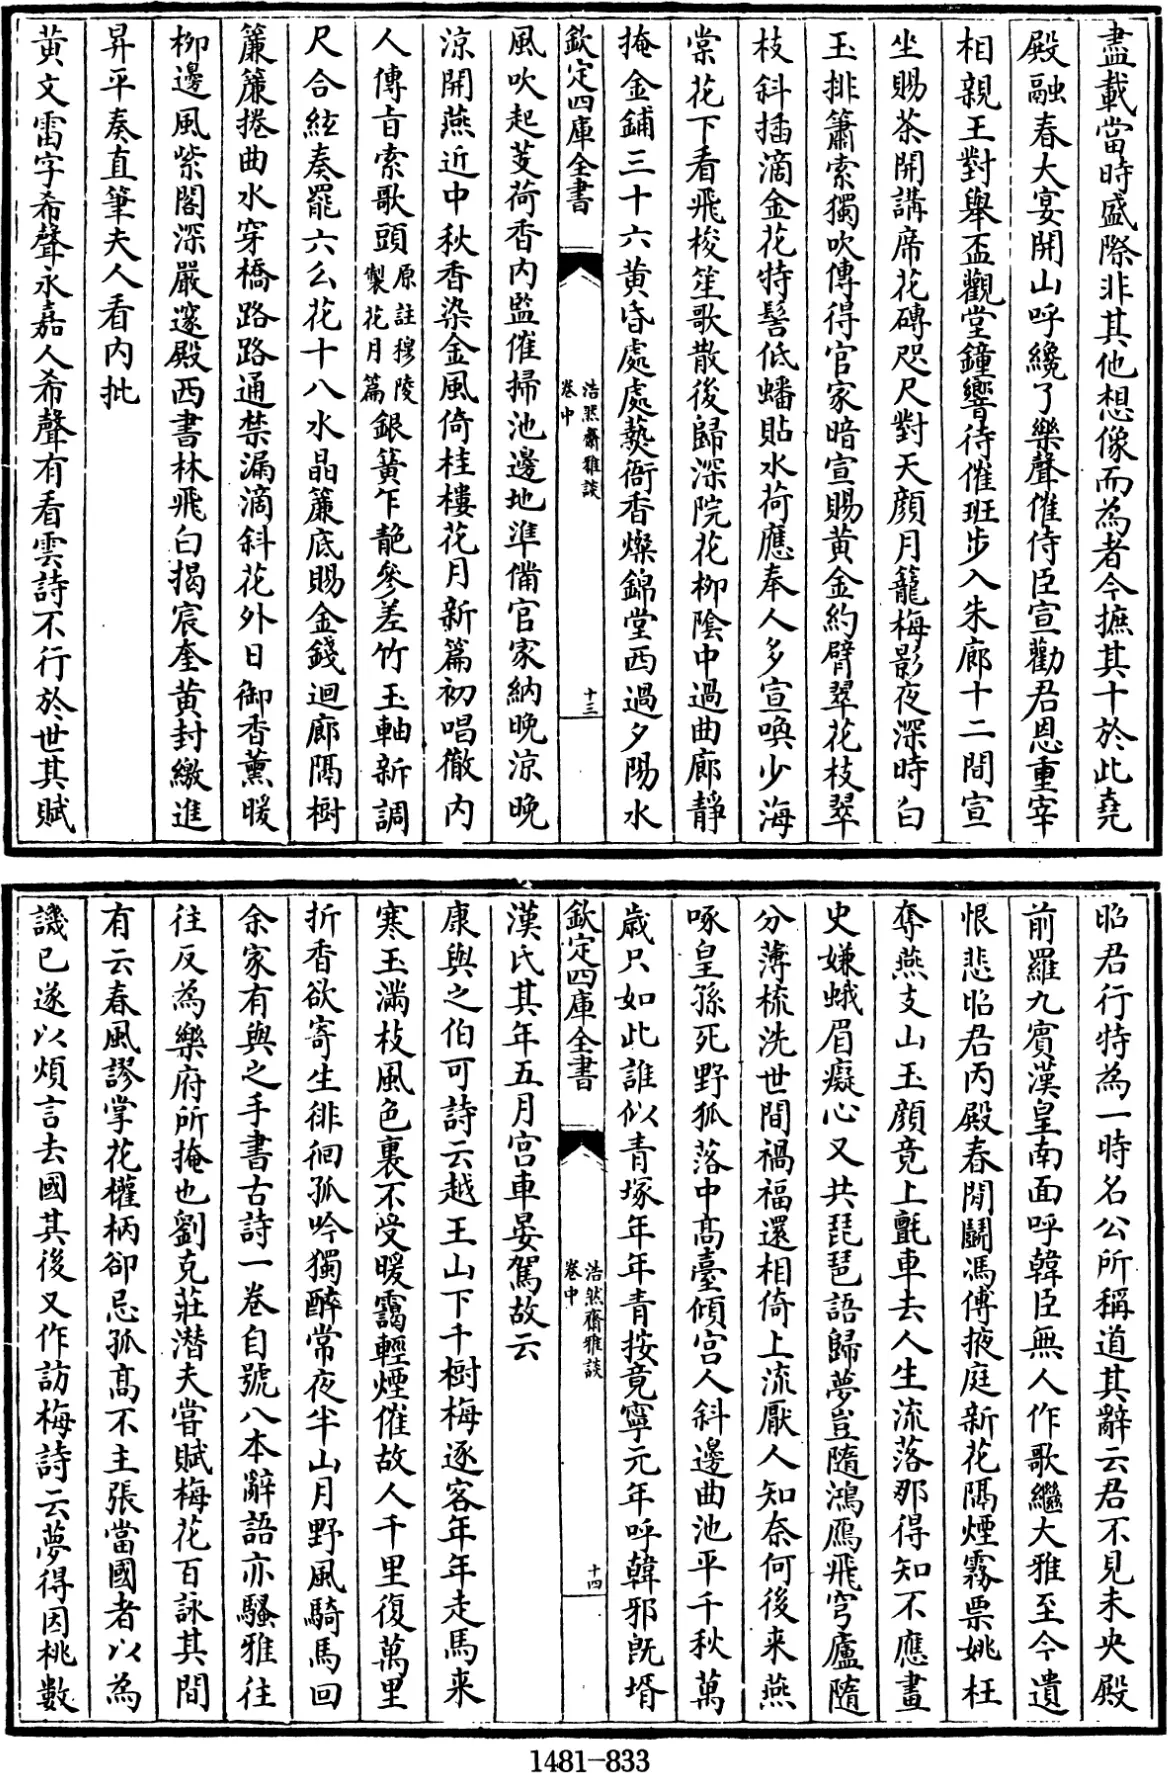 盡載當時盛際非其他想像而為者今摭其十於此堯
殿融春大宴開山呼纔了樂聲催侍臣宣勸君恩重宰
相親王對舉盃觀堂鐘響待催班步入朱廊十二間宣
坐賜茶開講席花磚咫尺對天顔月籠梅影夜深時白
玉排簫索獨吹傳得官家暗宣賜黄金約臂翠花枝翠
枝斜插滴金花特髻低蟠貼水荷應奉人多宣喚少海
棠花下看飛梭笙歌散後歸深院花柳陰中過曲廊靜
掩金鋪三十六黄昏處處爇衙香燦錦堂西過夕陽水
欽定四庫全書
浩然齋雅談
卷中
十三
風吹起芰荷香内監催掃池邊地準備官家納晚涼晚
涼開燕近中秋香染金風倚桂樓花月新篇初唱徹内
人傳㫖索歌頭原註穆陵製花月篇銀簧乍靘參差竹玉軸新調
尺合絃奏罷六么花十八水晶簾底賜金錢迴廊隔樹
簾簾捲曲水穿橋路路通禁漏滴斜花外日御香薫暖
柳邊風紫閣深嚴邃殿西書林飛白揭宸奎黄封繳進
昇平奏直筆夫人看内批
黄文雷字希聲永嘉人希聲有看雲詩不行於世其賦
昭君行特為一時名公所稱道其辭云君不見未央殿
前羅九賓漢皇南面呼韓臣無人作歌繼大雅至今遺
恨悲昭君丙殿春閒鬭馮傅掖庭新花隔煙霧票姚枉
奪燕支山玉顔竟上氊車去人生流落那得知不應畫
史嫌蛾眉癡心又共琵琶語歸夢豈隨鴻鴈飛穹廬隨
分薄梳洗世間禍福還相倚上流厭人知奈何後来燕
啄皇孫死野狐落中高臺傾宫人斜邊曲池平千秋萬
歳只如此誰似青塚年年青按竟寧元年呼韓邪旣壻
欽定四庫全書
浩然齋雅談
卷中
十四
漢氏其年五月宫車晏駕故云
康與之伯可詩云越王山下千樹梅逐客年年走馬来
寒玉滿枝風色裏不受暖靄輕煙催故人千里復萬里
折香欲寄生徘徊孤吟獨醉常夜半山月野風騎馬回
余家有與之手書古詩一卷自號八本辭語亦騷雅往
往反為樂府所掩也劉克莊潛夫嘗賦梅花百詠其間
有云春風謬掌花權柄卻忌孤高不主張當國者以為
譏已遂以煩言去國其後又作訪梅詩云夢得因桃數
1481-833